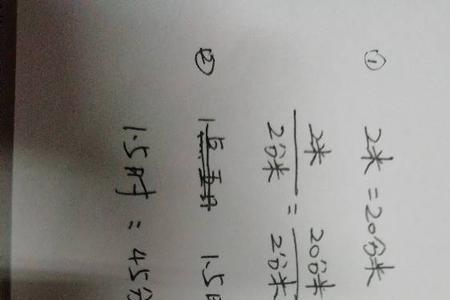 ① 2米 = 20分米
2米 20分米
2分米 = 2分米
② 1.5
1.5时 = 45分